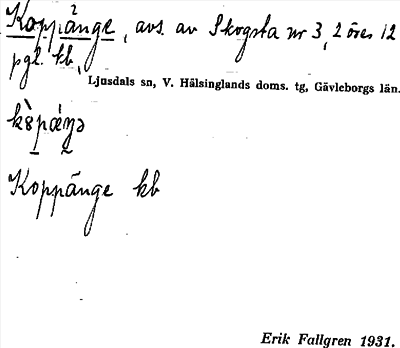 Koppänge, avs. av Skogsta nr 3, 2 öres 12
pgl. kb,
Ljusdals sn, V. Hälsinglands doms. tg, Gävleborgs län.
Koppänge kb
Erik Fallgren 1931.